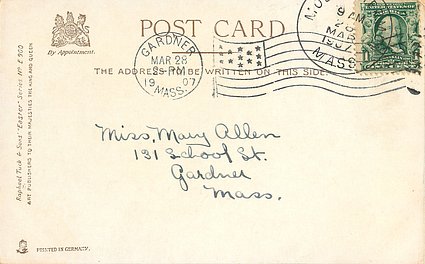 POST CARD
By Appointment.
THE ADDRESS TO BE WRITTEN ON THIS SIDE
GARDNER
MAR 28
2-PM
1907
MASS.
9 AM
MAR
1907
MASS.
Miss, Mary Allen
131 School St.
Gardner
Mass.
Raphael Tuck & Sons' "Easter" Series No E 950
ART PUBLISHERS TO THEIR MAJESTIES THE KING AND QUEEN
PRINTED IN GERMANY.